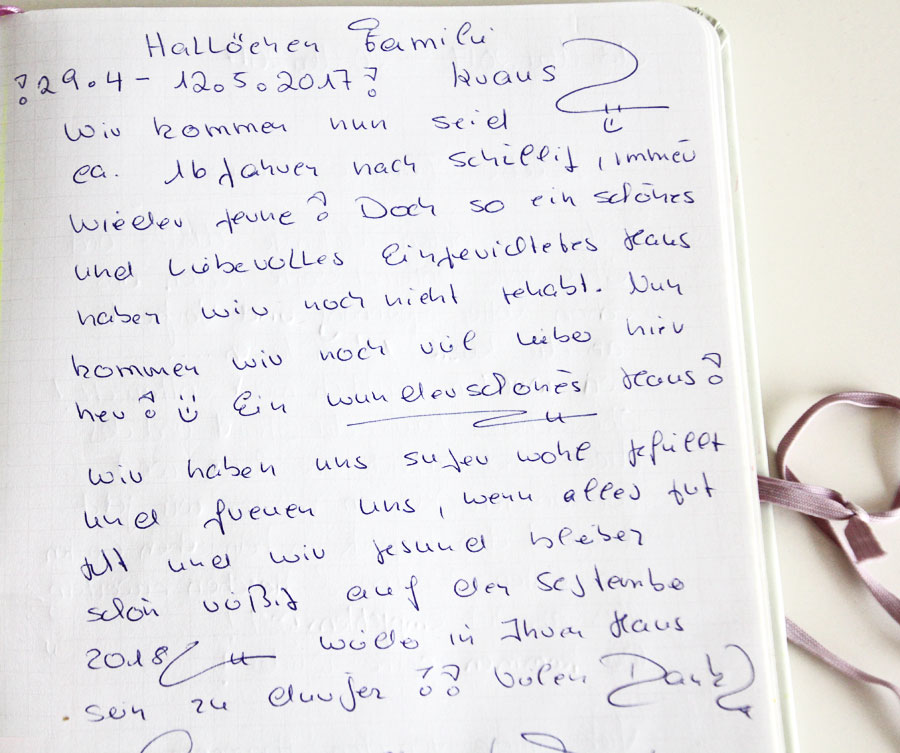 Hallöchen Familie
!29.4 - 12.5.2017! Kraus
Wir kommen nun seid
ca. 16 Jahren nach Schillig, immer
wieder gerne! Doch so ein schönes
und liebevolles Eingerichtetes Haus
haben wir noch nicht gehabt. Nun
kommen wir noch viel lieber hier
her! Ein wunderschönes Haus!
Wir haben uns super wohl gefühlt
und freuen uns, wenn alles gut
geht und wir gesund bleiben
schon auf den September
2018 wieder in Ihrem Haus
sein zu dürfen !! Vielen Dank